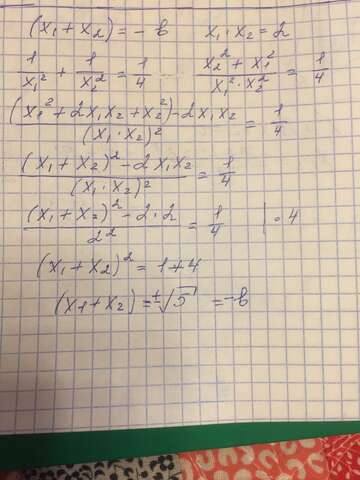 (x₁ + x₂) = - b    x₁ · x₂ = 2
1/x₁² + 1/x₂² = 1/4    (x₂² + x₁²)/(x₁² · x₂²) = 1/4
((x₁² + 2x₁x₂ + x₂²) - 2x₁x₂)/(x₁ · x₂)² = 1/4
((x₁ + x₂)² - 2x₁x₂)/(x₁ · x₂)² = 1/4
((x₁ + x₂)² - 2·2)/2² = 1/4 | · 4
(x₁ + x₂)² = 1+4
(x₁ + x₂) = ±√5 = -b